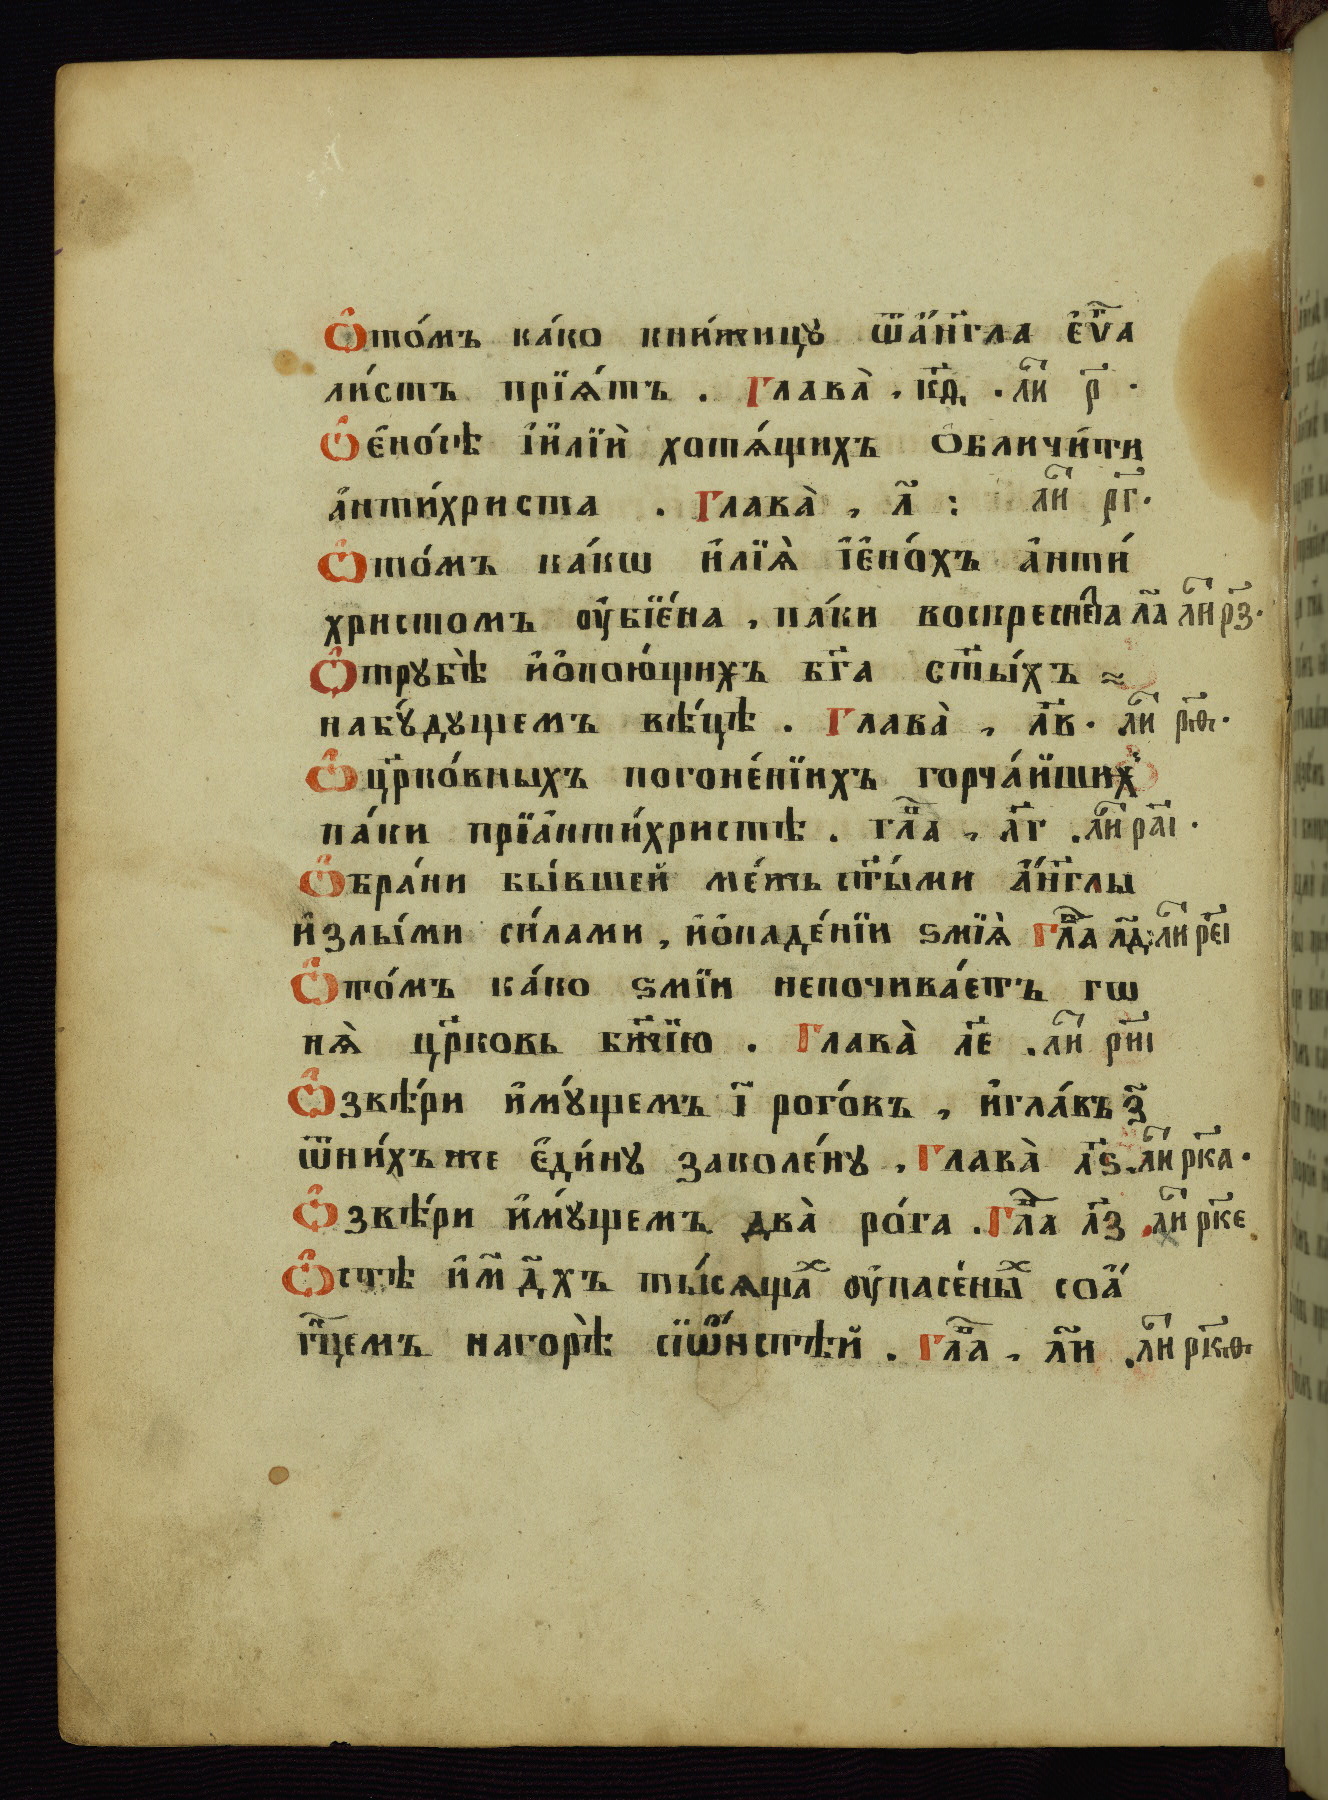 Ѽто́мъ ка́ко кни́жицꙋ ѿа́нг҃ла є҆ѵ҃а
ли́стъ прїѧ́тъ . Глава̀ . к҃д . ли҃ р҃ .
Ѽє҆но́сѣ і҆и҆лїѝ хотѧ́щихъ Ѻбличи́ти
а҆нти́христа . Глава̀ , л҃ : ли҃ р҃г .
Ѽто́мъ ка́кѡ и҆лїѧ̀ і҆є҆но́хъ а҆нти́
христомъ ᲂу҆бїе́на , па́ки воскресне́та л҃а ли҃ р҃з .
Ѽтрꙋбѣ̀ и҆ѻ҆пою́щихъ бг҃а ст҃ы́хъ
набꙋ́дꙋщемъ вѣ́цѣ . Глава̀ , л҃в . ли҃ р҃ѳ .
Ѽцр҃ко́вныхъ погоне́нїихъ горча́йших
па́ки прїа҆нти́христѣ . гл҃а , л҃г . ли҃ р҃аі .
Ѽбра́ни бы́вшей ме́жь ст҃ы́ми а҆́нг҃лы
и҆злы́ми си́лами , и҆ѻ҆паде́нїи ѕмїѧ̀ Гл҃а л҃д ли҃ р҃еі
Ѽто́мъ ка́ко ѕмїи непочива́етъ гѡ
нѧ̀ цр҃ковь бж҃їю . Глава̀ л҃е . ли҃ р҃иі
Ѽзвѣ́ри и҆мꙋ́щемъ і҃ рого́въ , и҆гла́въ з҃
ѿни́хъже є҆ди́нꙋ заколе́нꙋ . Глава̀ л҃ѕ . ли҃ р҃ка .
Ѽзвѣ́ри и҆мꙋ́щемъ два̀ ро́га . Гл҃а л҃з . ли҃ р҃ке
Ѽстѣ и҆м҃ д҃хъ ты́сѧщах ᲂу҆пасе́ных соа҆́
гнцемъ нагорѣ̀ сїѡ҆́нстѣй . гл҃а , л҃и . ли҃ р҃кѳ